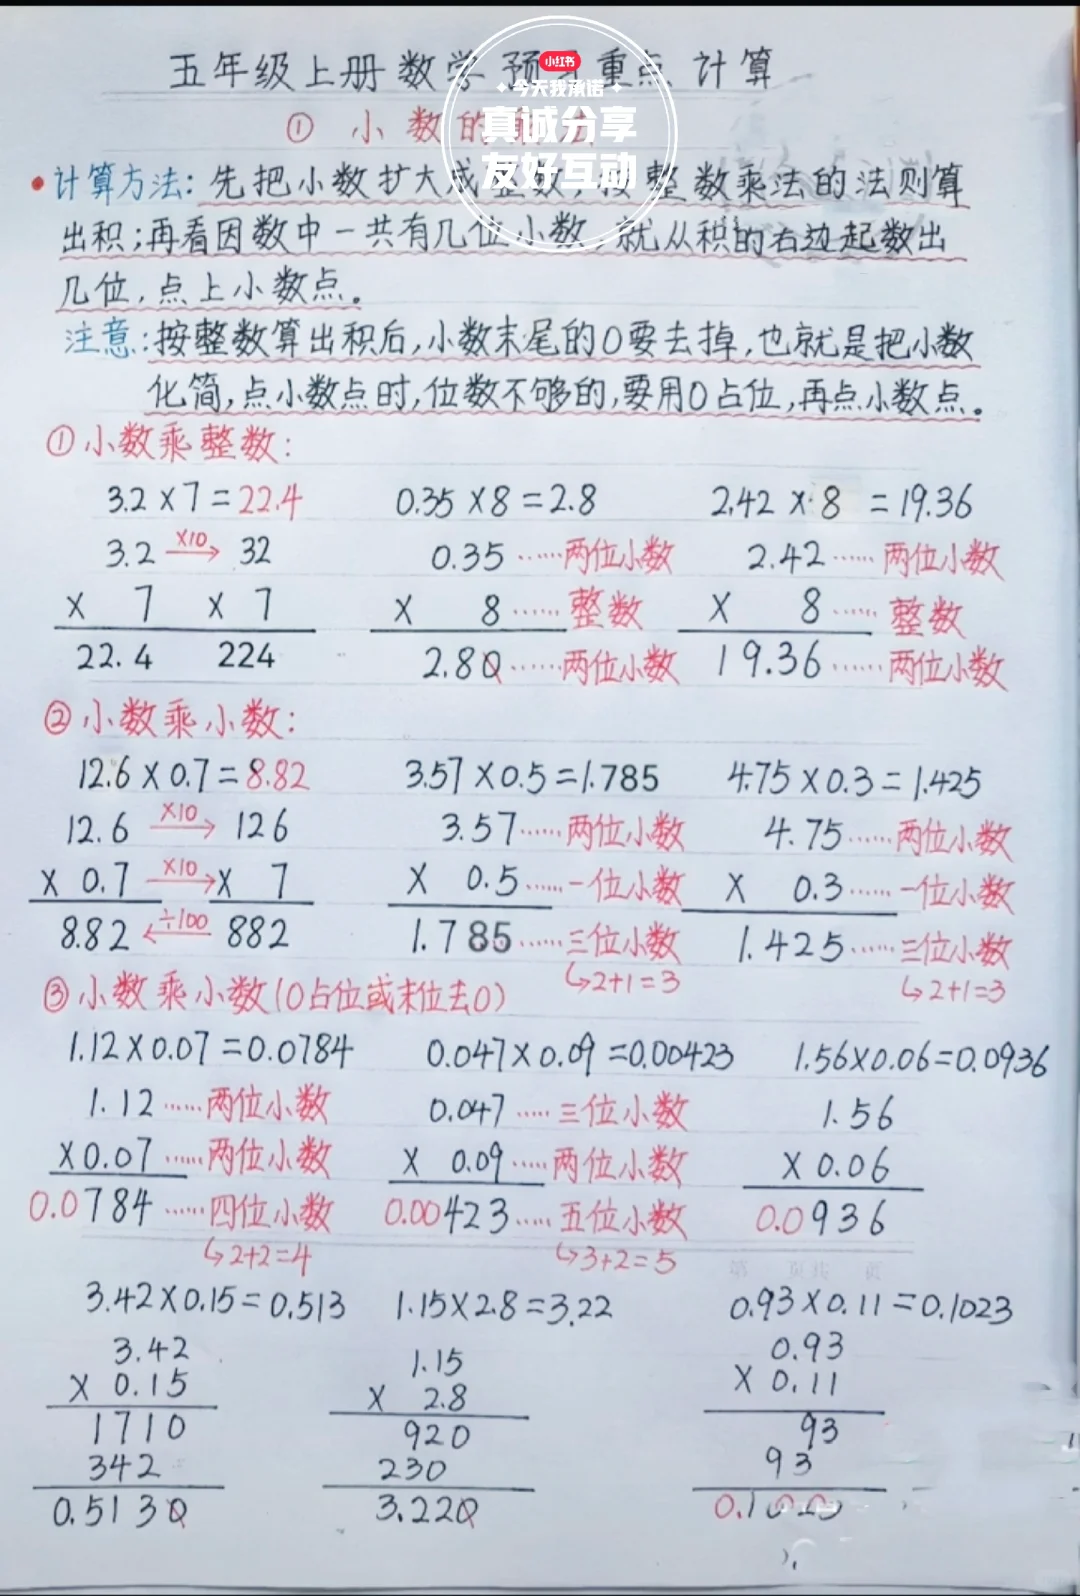 五年级上册数学预习重点 计算
小红书
今天我承诺
真诚分享
友好互动
① 小数的乘法
计算方法：先把小数扩大成整数，按整数乘法的法则算
出积；再看因数中一共有几位小数，就从积的右边起数出
几位，点上小数点。
注意：按整数算出积后，小数末尾的0要去掉，也就是把小数
化简，点小数点时，位数不够的，要用0占位，再点小数点。
①小数乘整数：
3.2×7=22.4 0.35×8=2.8 2.42×8=19.36
3.2 ×10 32 0.35……两位小数 2.42……两位小数
× 7 × 7 × 8……整数 × 8……整数
22.4 224 2.80……两位小数 19.36……两位小数
②小数乘小数：
12.6×0.7=8.82 3.57×0.5=1.785 4.75×0.3=1.425
12.6 ×10 126 3.57……两位小数 4.75……两位小数
× 0.7 ×10 × 7 × 0.5……一位小数 × 0.3……一位小数
8.82 ÷100 882 1.785……三位小数 1.425……三位小数
2+1=3 2+1=3
③小数乘小数(0占位或末位去0)
1.12×0.07=0.0784 0.047×0.09=0.00423 1.56×0.06=0.0936
1.12……两位小数 0.047……三位小数 1.56
×0.07……两位小数 × 0.09……两位小数 ×0.06
0.0784……四位小数 0.00423……五位小数 0.0936
2+2=4 3+2=5
3.42×0.15=0.513 1.15×2.8=3.22 0.93×0.11=0.1023
3.42 1.15 0.93
× 0.15 × 2.8 × 0.11
1710 920 93
342 230 93
0.5130 3.220 0.1023